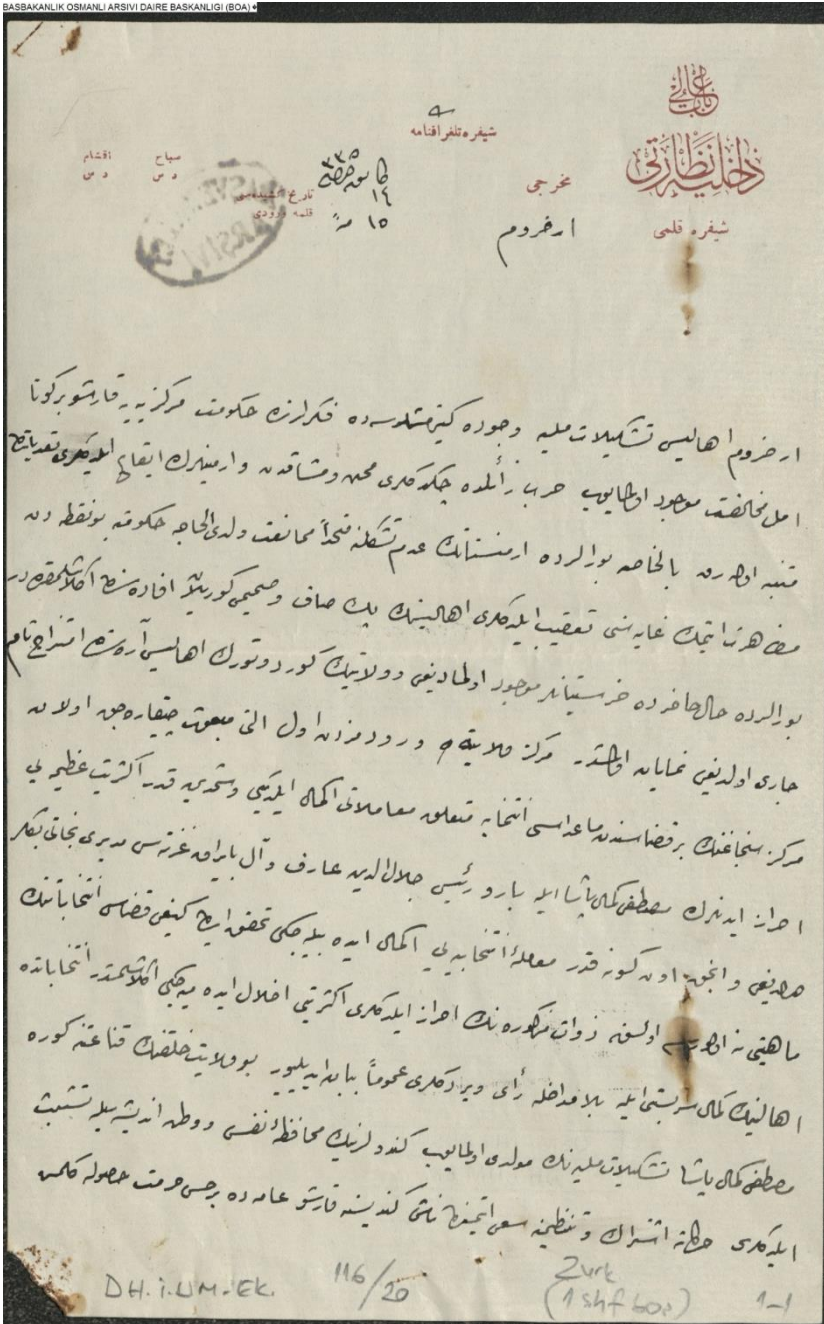 BASBAKANLIK OSMANLI ARSIVI DAIRE BASKANLIGI (BOA)
باب عالی
داخلیه نظارتی
شیفره قلمی
شیفره تلغرافنامه
مخرجی
ارضروم
صباح
اقشام
د س
د س
تاریخ
قلمه ورودی
٣٣٥
١٤
١٥ منه
ارضروم اهالیسی تشکیلات ملیه وجوده كتیرمشلرسه ده فکرلرنده حکومت مرکزیه یه قارشو بر کونا
امل مخالفت موجود اولمایوب حرب زائلده چکدکلری محن ومشاقدن و ارمنیلرك ایقاع ایلدکلری تعدیاتدن
متنبه اوله رق بالخاصه بورالرده ارمنستانك عدم تشکلنه متحداً ممانعت ولدی الحاجه حکومته بو نقطه دن
مظاهرت ایتمك غایه سنی تعقیب ایلدکلری اهالینك پك صاف وصمیمی کوریلن افاده سندن اکلاشلمقده در
بورالرده حال حاضرده خرستیانلر موجود اولمادیغی وولایتك کورد وتورك اهالیسی آره سنده امتزاج تام
جاری اولدیغی نمایان اولمقده در مرکز ولایته ورودمزدن اول التی مبعوث چیقاره جق اولان
مرکز سنجاغنك بر قضاسندن ماعداسی انتخابه متعلق معاملاتی اکمال ایلدیکی وشمدی یه قدر اکثریت عظیمه یی
احراز ایدنلرك مصطفی کمال پاشا ایله بارو رئیسی جلال الدین عارف وآل بایراق غزته سی مدیری نجاتی بکلر
اولدیغی وانجق اون کونه قدر معامله انتخابیه یی اکمال ایده بیله جکی تحقق ایدن کیغی قضاسی انتخاباتنك
ماهیتی نه اولورسه اولسون ذوات مذکوره نك احراز ایلدکلری اکثریتی اخلال ایده میه جکی اکلاشلمقده در انتخاباتده
اهالینك کمال سربستی ایله بلا مداخله رأی ویردکلری عموماً بیان ایدیلیور بو ولایت خلقنك قناعتنه کوره
مصطفی کمال پاشا تشکیلات ملیه نك مولدی اولمایوب کندولرینك محافظه نفس ووطن اندیشه سیله تشبث
ایلدکلری حرکاته اشتراك وتنظیمنه سعی ایتمیش ناشی کندیسنه قارشو عامه ده بر حس حرمت حصوله کلمش
DH.İ.UM-EK.
116/20
Zurk
(1 shf boş)
1-1